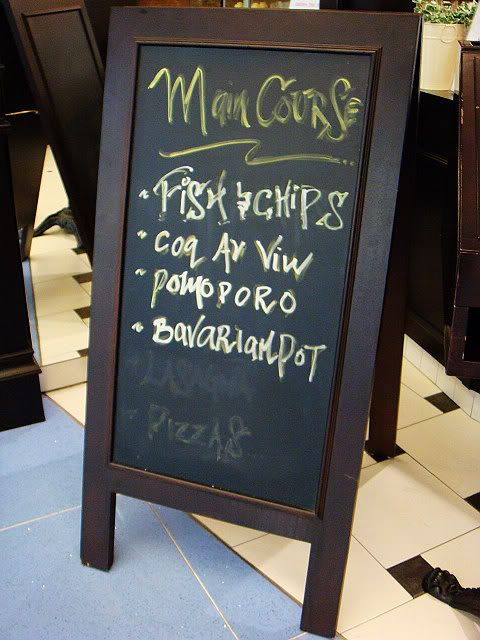 Main Course
- Fish & Chips
- Coq Au Vin
- Pomoporo
- Bavarian Pot
- Lasagna
- Pizzas